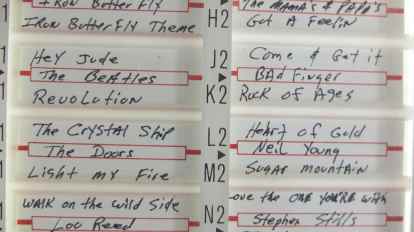 Iron Butterfly
Iron Butterfly Theme
Hey Jude
The Beatles
Revolution
The Crystal Ship
The Doors
Light my Fire
Walk on the wild Side
Lou Reed
The MAMA's & PAPA's
H2
Got A Feelin
J2
Come & Get it
BAd Finger
K2
Rock of Ages
L2
Heart of Gold
Neil Young
M2
Sugar mountain
ove the ONE YOU'RE with
N2
Stephen Stills